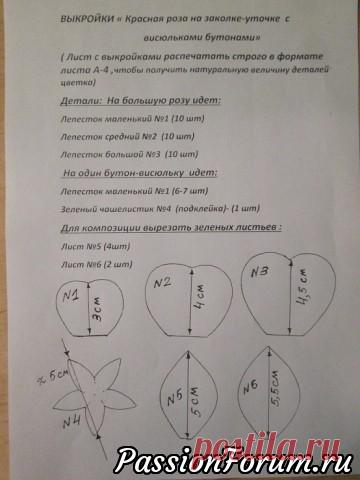 ВЫКРОЙКИ « Красная роза на заколке-уточке с
висюльками бутонами»
( Лист с выкройками распечатать строго в формате
листа А-4 , чтобы получить натуральную величину деталей
цветка)
Детали: На большую розу идет:
Лепесток маленький №1 (10 шт)
Лепесток средний №2 (10 шт)
Лепесток большой №3 (10 шт)
На один бутон-висюльку идет:
Лепесток маленький №1 (6-7 шт)
Зеленый чашелистик №4 (подклейка)- (1 шт)
Для композиции вырезать зеленых листьев :
Лист №5 (4шт)
Лист №6 (2 шт)
№1 3см
№2 4см
№3 4,5см
≈5см №4
№5 5см
№6 5,5см
postila.ru
PassionForum.ru